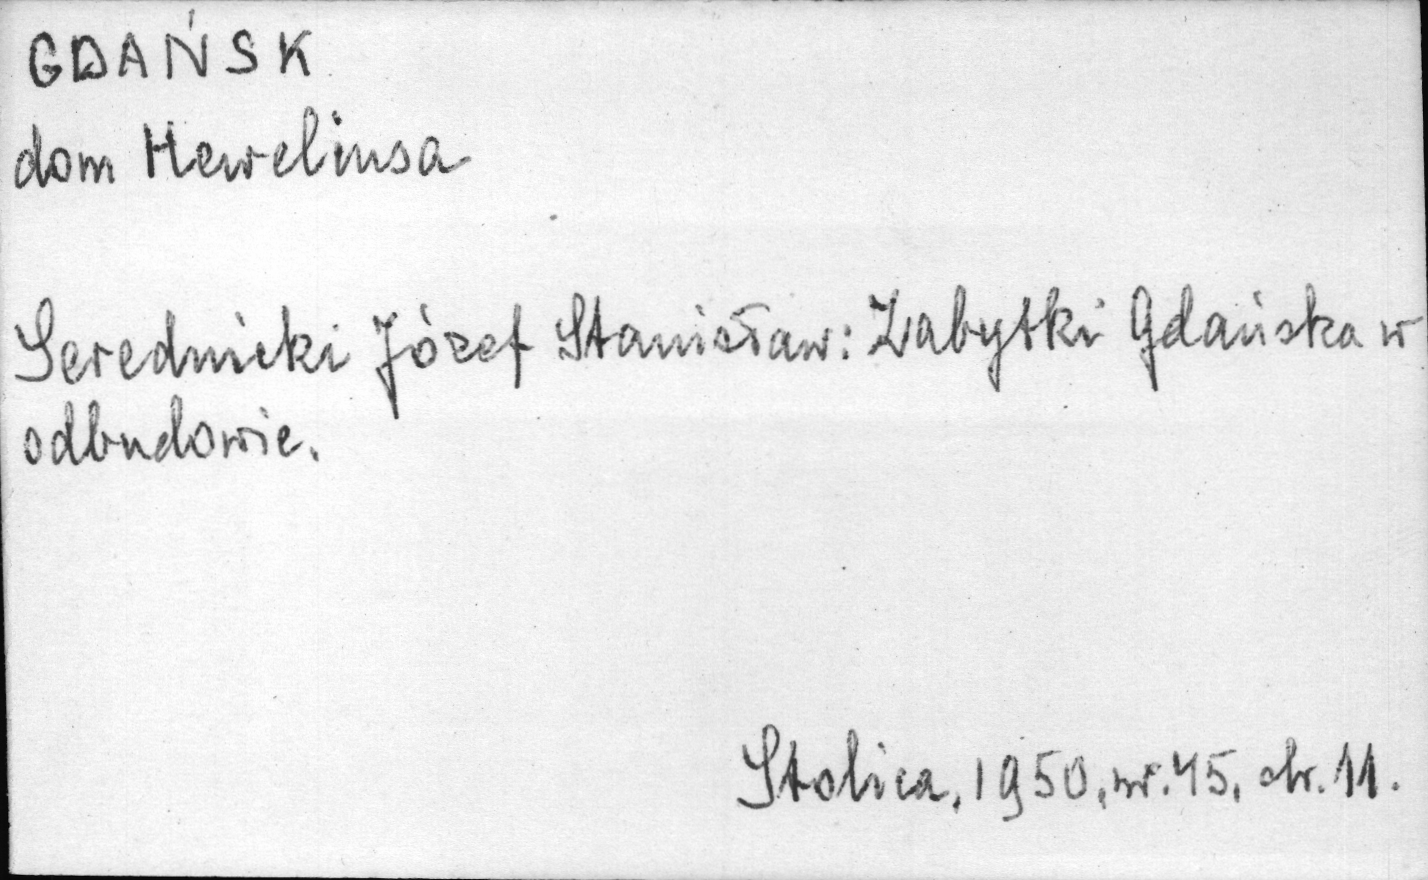 GDAŃSK
dom Heweliusa
Serednicki Józef Stanisław: Zabytki Gdańska w
odbudowie.
Stolica, 1950, nr. 45, str. 11.